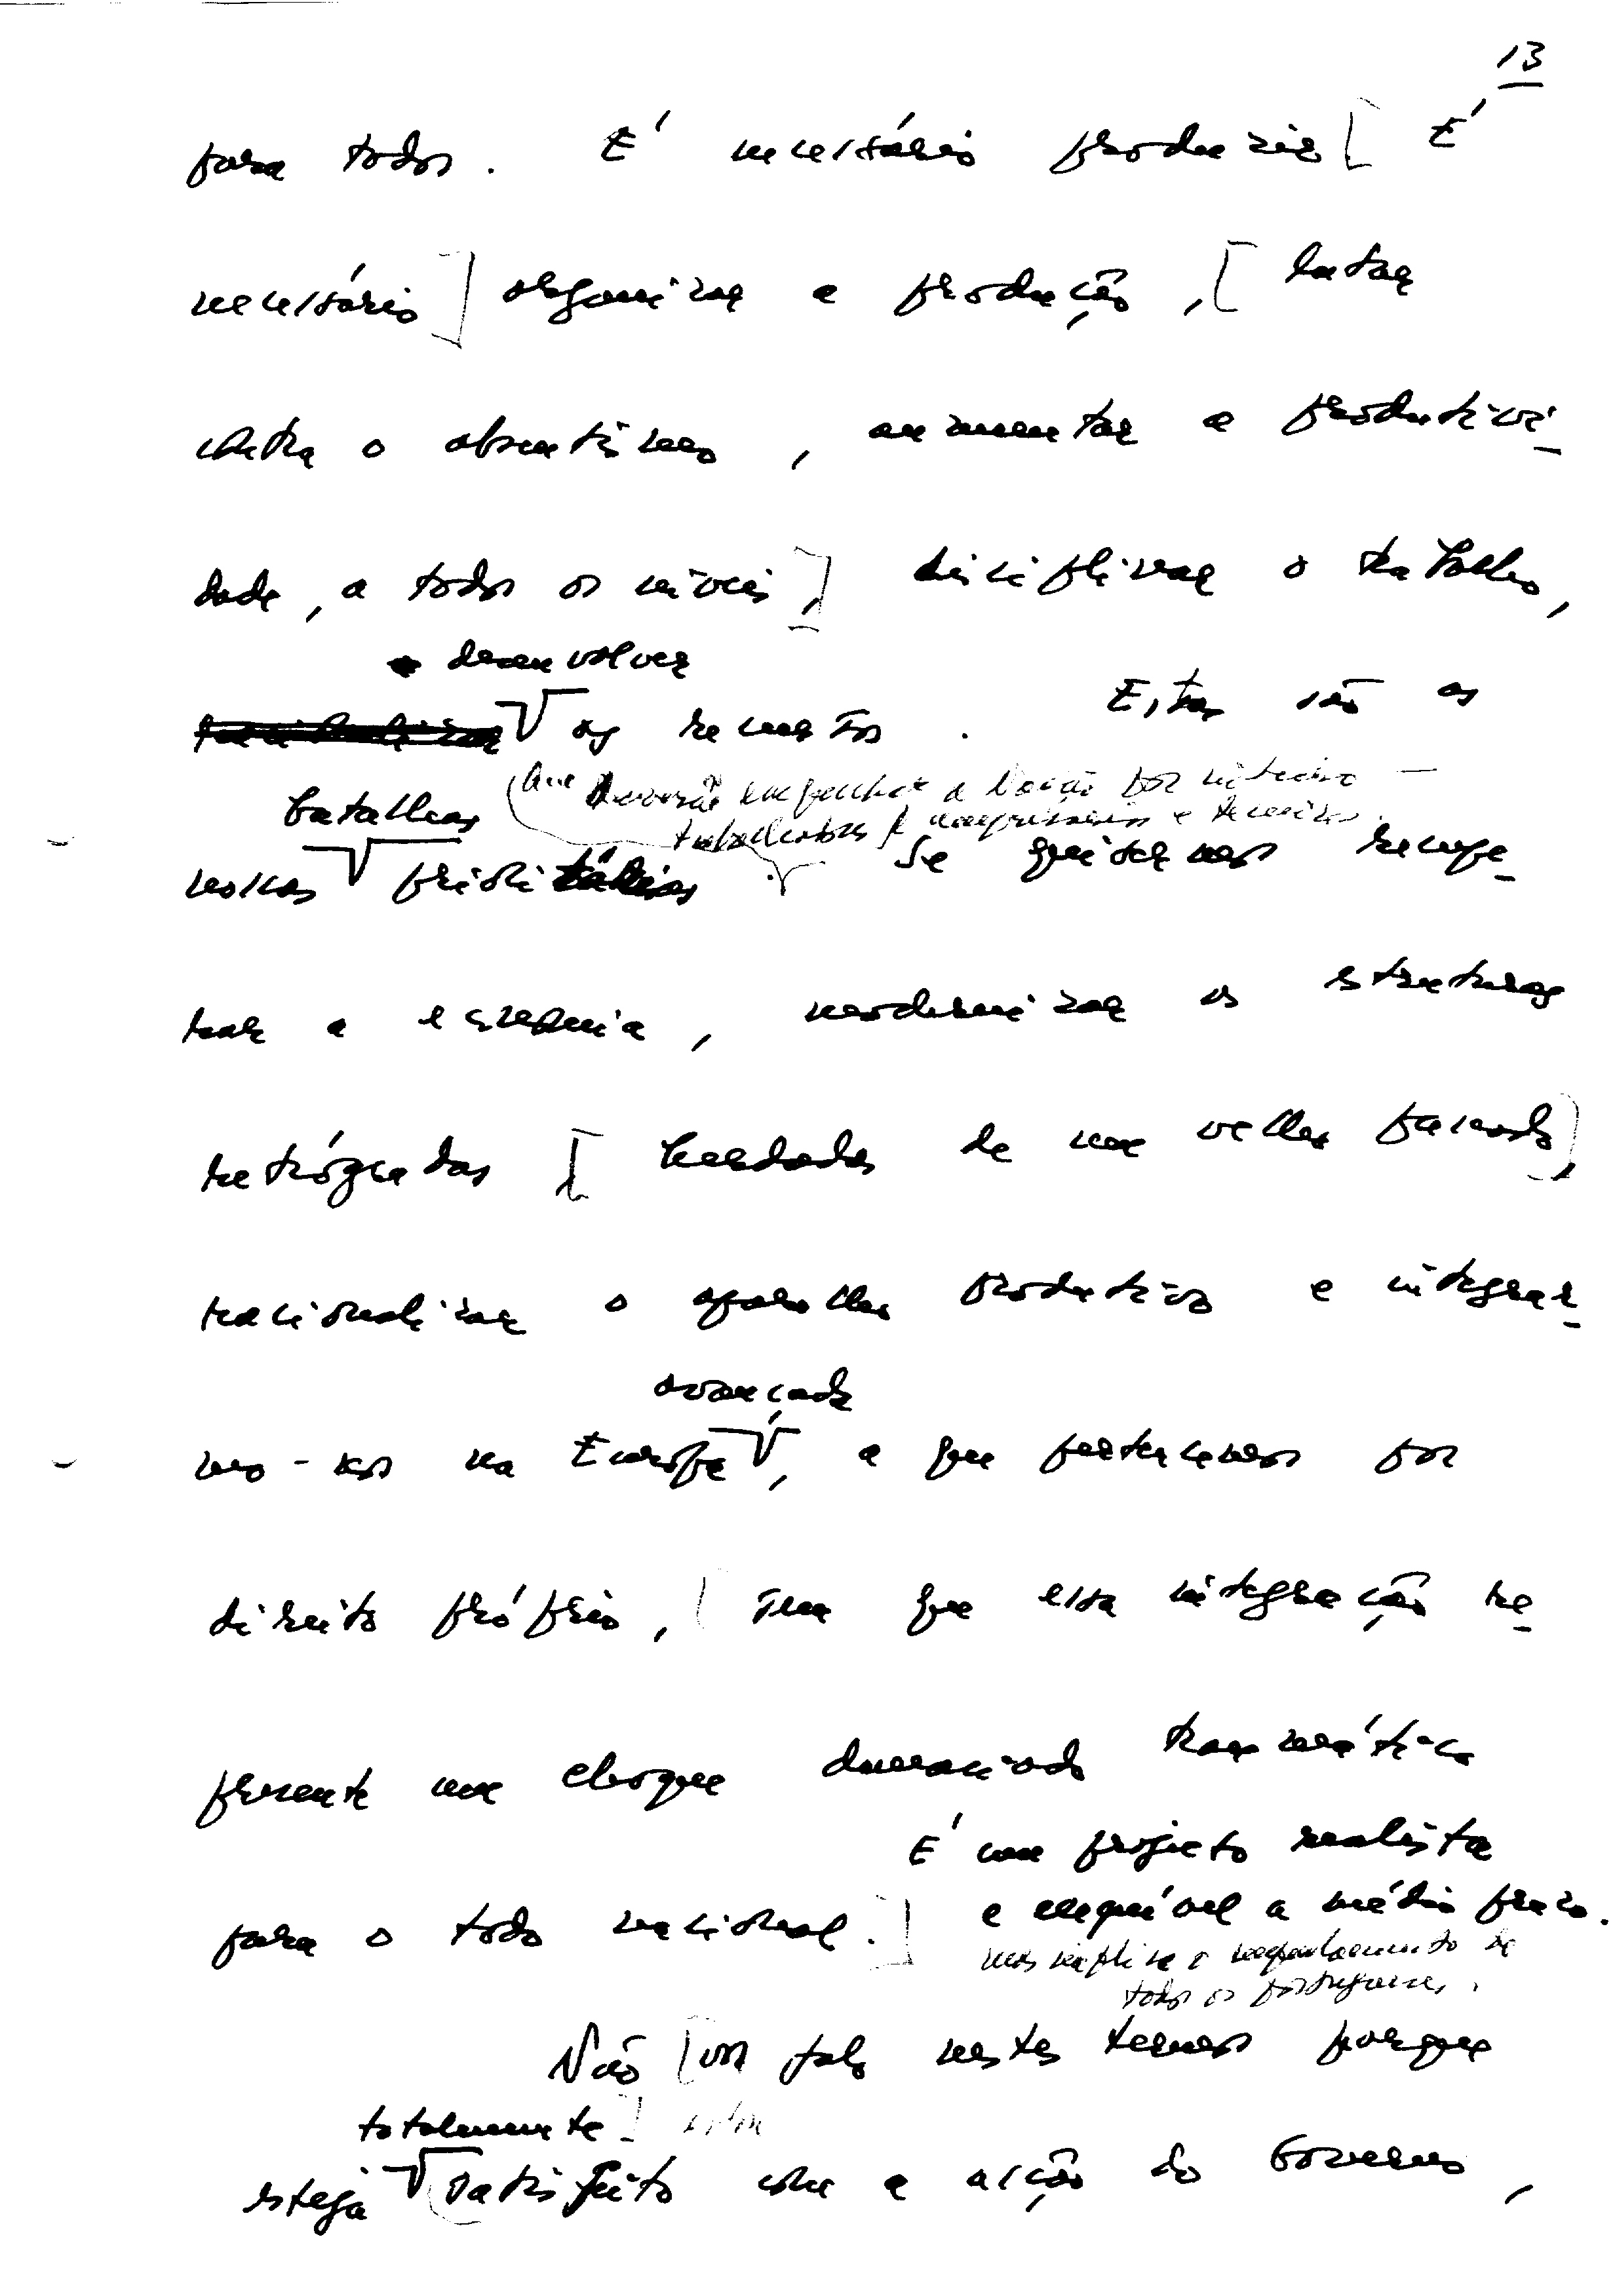 13
para todos. É necessário produzir [ É
necessário ] organizar a produção, [ lutar
contra o absentismo, aumentar a produtivi-
dade, a todos os níveis, ] disciplinar o trabalho,
desenvolver
os recursos. Estas são as
que deverão empenhar a Nação por inteiro —
batalhas
trabalhadores, empresários e técnicos.
nossas prioritárias. Se quisermos recupe-
rar a economia, modernizar as estruturas
retrógradas [ herdadas de um velho passado ],
racionalizar o aparelho produtivo e integrar-
avançada
mo-nos na Europa, a que pertencemos por
direito próprio, [ sem que essa integração re-
presente um choque demasiado traumático
É um projecto realista
para o todo nacional. ] e exequível a médio prazo.
mas implica o empenhamento de
todos os portugueses.
Não [ vos falo nestes termos porque
totalmente ] estou
esteja satisfeito com a acção do Governo,